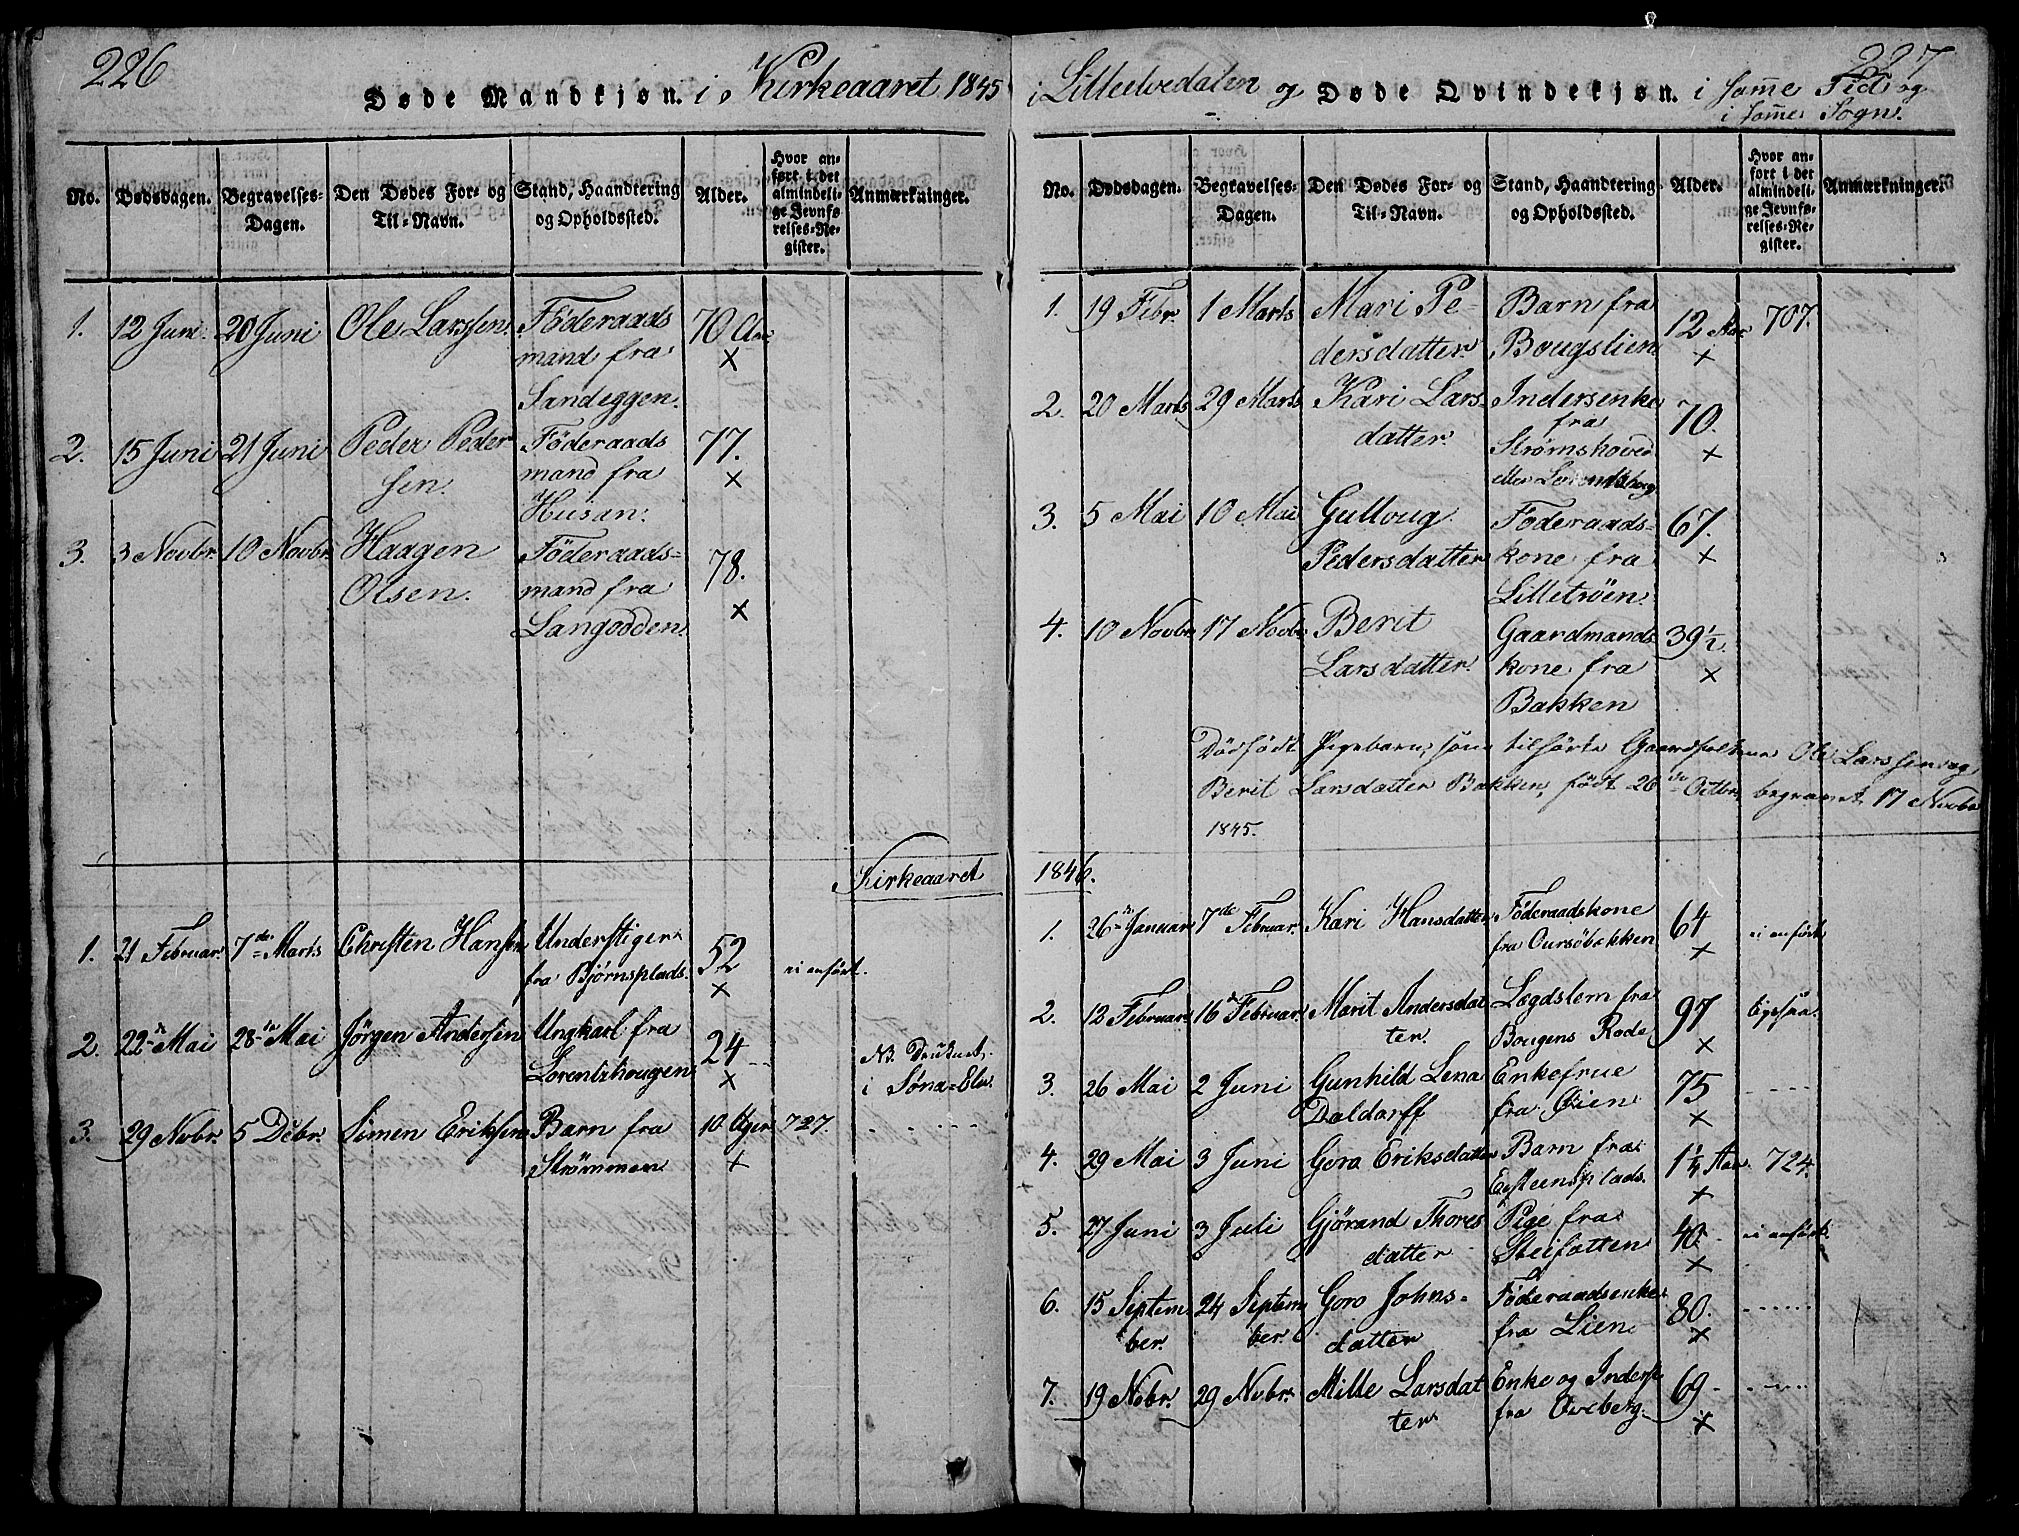 226
Døde Mandkjøn. i Kirkeaaret 1845
No. Dødsdagen. Begravelses-Dagen. Den Dødes For- og Til-Navn. Stand, Haandtering og Opholdssted. Alder. Hvor anført i det almindelige Jevnførelses-Register. Anmærkninger.
1. 12 Juni 20 Juni Ole Larssen. Föderaads 70 Aar
mand fra ×
Sandeggen.
2. 15 Juni 21 Juni Peder Peder Föderaads 77.
sen. mand fra ×
Husan.
3. 3 Novbr. 10 Novbr. Haagen Föderaads= 78.
Olsen. mand fra ×
Langodden.
Kirkeaaret
1. 21 Februar. 7de Marts Christen Hansen Understiger 52
fra Bjørnsplads. × ei anfört.
2. 22 Mai 28 Mai Jörgen Andersen Ungkarl fra 24 NB. Druknet
Lorentzhougen × i Søna=Elv.
3. 29 Novbr. 5 Decbr. Simen Eriksen Barn fra 10 Uger 727.
Strömmen ×
227
i Lilleelvedalen og Døde Qvindekjøn. i samme Tid og
i samme Sogn.
No. Dødsdagen. Begravelses-Dagen. Den Dødes For- og Til-Navn. Stand, Haandtering og Opholdssted. Alder. Hvor anført i det almindelige Jevnførelses-Register. Anmærkninger.
1. 19 Febr. 1 Marts Mari Pe- Barn fra 12 Aar 707.
dersdatter. Bougslien ×
2. 20 Marts 29 Marts Kari Lars- Indersenke 70.
datter. fra ×
Strømshoved
eller
3. 5 Mai 10 Mai Gulloug Föderaads= 67.
Pedersdatter kone fra ×
Lilletröen.
4. 10 Novbr 17 Novbr. Berit Gaardmands 39½.
Larsdatter. kone fra ×
Bakken
Dödfödt Pigebarn, som tilhörte Gaardfolkene Ole Larssen og
Berit Larsdatter Bakken, födt 26de Octbr, begravet 17 Novbr
1845.
1846.
1. 26 Januar 7de Februar. Kari Hansdatter Föderaadskone 64
fra Oursöbakken × ei anfört
2. 12 Februar 16 Februar. Marit Andersdat Lægdslem fra 97 Ligesaa.
ter. Bougens Rode ×
3. 26 Mai 2 Juni Gunhild Lena Enkefrue 75
Daldorff fra Øien ×
4. 29 Mai 3 Juni Goro Eriksdatter Barn fra 1¼ Aar. 724.
Eysteensplads. ×
5. 27 Juni 3 Juli Gjörand Thores Pige fra 40. ei anfört
datter Steifatten ×
6. 15 Septem 24 Septem Goro Johns- Föderaadsenke 80.
ber. ber. datter fra Lien ×
7. 19 Nvbr. 29 Nvbr. Mille Larsdat Enke og Inderst 69
ter. fra Oveberg. ×